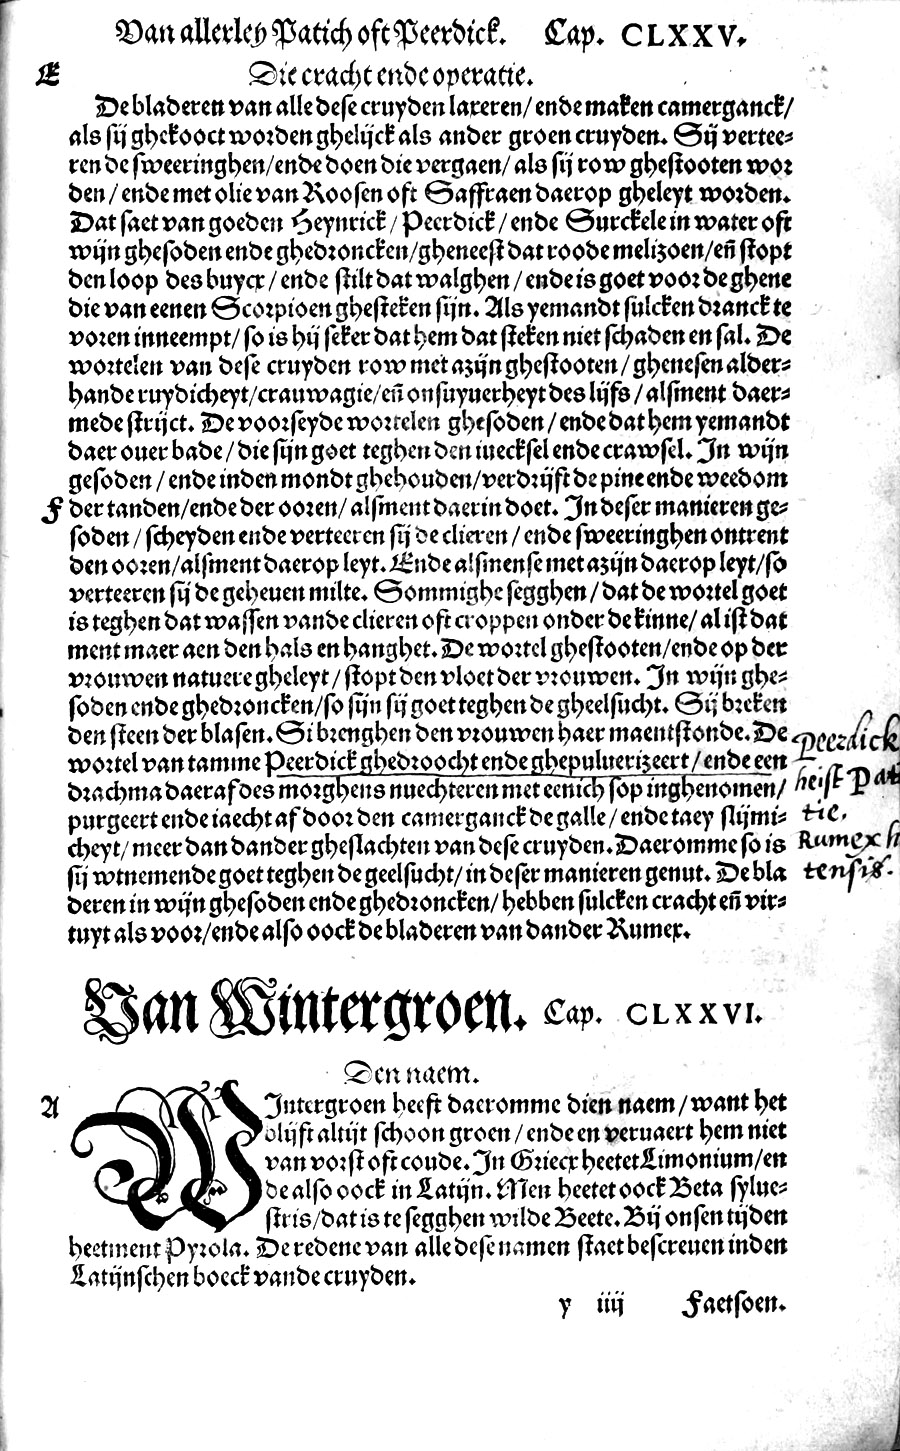 Van allerley Patich oft Peerdick. Cap. CLXXV.
E
Die cracht ende operatie.
De bladeren van alle dese cruyden laxeren/ ende maken camerganck/
als sij ghekooct worden ghelijck als ander groen cruyden. Sij vertee=
ren de sweeringhen/ende doen die vergaen/ als sij row ghestooten wor
den/ ende met olie van Roosen oft Saffraen daerop gheleyt worden.
Dat saet van goeden Heynrick/ Peerdick/ ende Surckele in water oft
wijn ghesoden ende ghedroncken/gheneest dat roode melizoen/eñ stopt
den loop des buycx/ ende stilt dat walghen/ ende is goet voor de ghene
die van eenen Scorpioen ghesteken sijn. Als yemandt sulcken dranck te
voren inneempt/ so is hij seker dat hem dat steken niet schaden en sal. De
wortelen van dese cruyden row met azijn ghestooten/ ghenesen alder=
hande ruydicheyt/crauwagie/eñ onsuyuerheyt des lijfs/ alsment daer=
mede strijct. De voorseyde wortelen ghesoden/ ende dat hem yemandt
daer ouer bade/ die sijn goet teghen den iuecksel ende crawsel. In wijn
gesoden/ ende inden mondt ghehouden/verdrijft de pine ende weedom
F
der tanden/ende der ooren/ alsment daerin doet. In deser manieren ge=
soden/ scheyden ende verteeren sij de clieren/ ende sweeringhen ontrent
den ooren/alsment daerop leyt. Ende alsmense met azijn daerop leyt/so
verteeren sij de geheuen milte. Sommighe segghen/ dat de wortel goet
is teghen dat wassen vande clieren oft croppen onder de kinne/ al ist dat
ment maer aen den hals en hanghet. De wortel ghestooten/ende op der
vrouwen natuere gheleyt/ stopt den vloet der vrouwen. In wijn ghe=
soden ende ghedroncken/so sijn sij goet teghen de gheelsucht. Sij breken
den steen der blasen. Si brenghen den vrouwen haer maentstonde. De
wortel van tamme Peerdick ghedroocht ende ghepuluerizeert/ ende een
drachma daeraf des morghens nuechteren met eenich sop inghenomen/
purgeert ende iaecht af door den camerganck de galle/ ende taey slijmi=
cheyt/ meer dan dander gheslachten van dese cruyden. Daeromme so is
sij wtnemende goet teghen de geelsucht/ in deser manieren genut. De bla
deren in wijn ghesoden ende ghedroncken/ hebben sulcken cracht eñ vir=
tuyt als voor/ende also oock de bladeren van dander Rumex.
Peerdick
heist Pati
tie.
Rumex h
tensis.
Van Wintergroen. Cap. CLXXVI.
Den naem.
A
WIntergroen heeft daeromme dien naem/ want het
blijft altijt schoon groen/ ende en veruaert hem niet
van vorst oft coude. In Griecx heetet Limonium/en
de also oock in Latijn. Men heetet oock Beta sylue=
stris/dat is te segghen wilde Beete. Bij onsen tijden
heetment Pyrola. De redene van alle dese namen staet bescreuen inden
Latijnschen boeck vande cruyden.
y iiij Faetsoen.